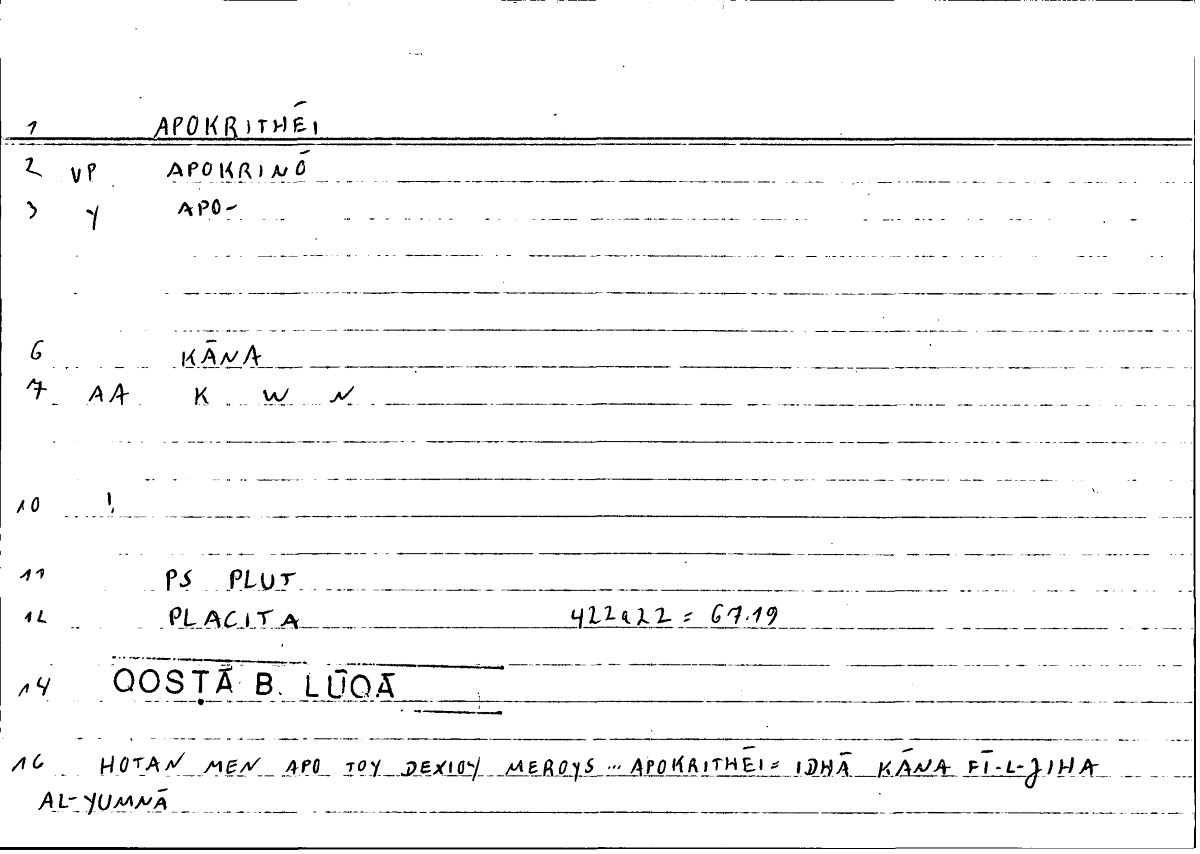 1 APOKRITHĒI
2 VP APOKRINŌ
3 Y APO-
6 KĀNA
7 AA K W N
10 !
11 PS PLUT
12 PLACITA 422a22 = 67.19
14 QOSṬĀ B. LŪQĀ
16 HOTAN MEN APO TOY DEXIOY MEROYS ... APOKRITHĒI = IDHĀ KĀNA FĪ-L-JIHA
AL-YUMNĀ